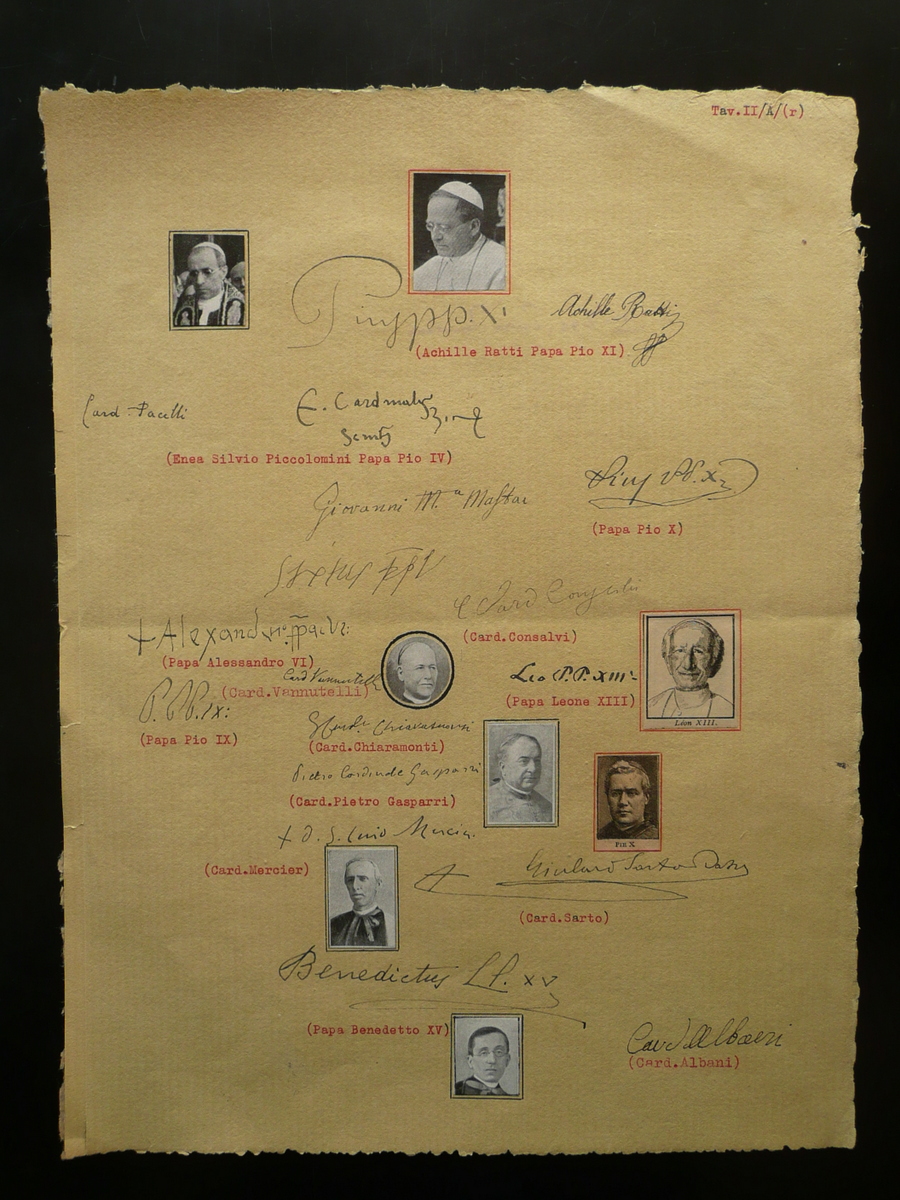 Tav.II/A/(r)
Pius pp. XI
Achille Ratti
(Achille Ratti Papa Pio XI)
Card. Pacelli
E. Cardinalis
Senes
(Enea Silvio Piccolomini Papa Pio IV)
Pius PP. X
Giovanni M.ª Mastai
(Papa Pio X)
Sixtus PP V
C Card Consalvi
(Card.Consalvi)
+ Alexander pp a VI:
(Papa Alessandro VI)
Card Vannutelli
(Card.Vannutelli)
Leo P.P. XIII
(Papa Leone XIII)
Léon XIII.
P. PP. IX:
(Papa Pio IX)
Chiaramonti
(Card.Chiaramonti)
Pietro Cardinale Gasparri
(Card.Pietro Gasparri)
PIE X
+ D. J. Card Mercier
(Card.Mercier)
Sarto
(Card.Sarto)
Benedictus PP. XV
(Papa Benedetto XV)
Card Albani
(Card.Albani)